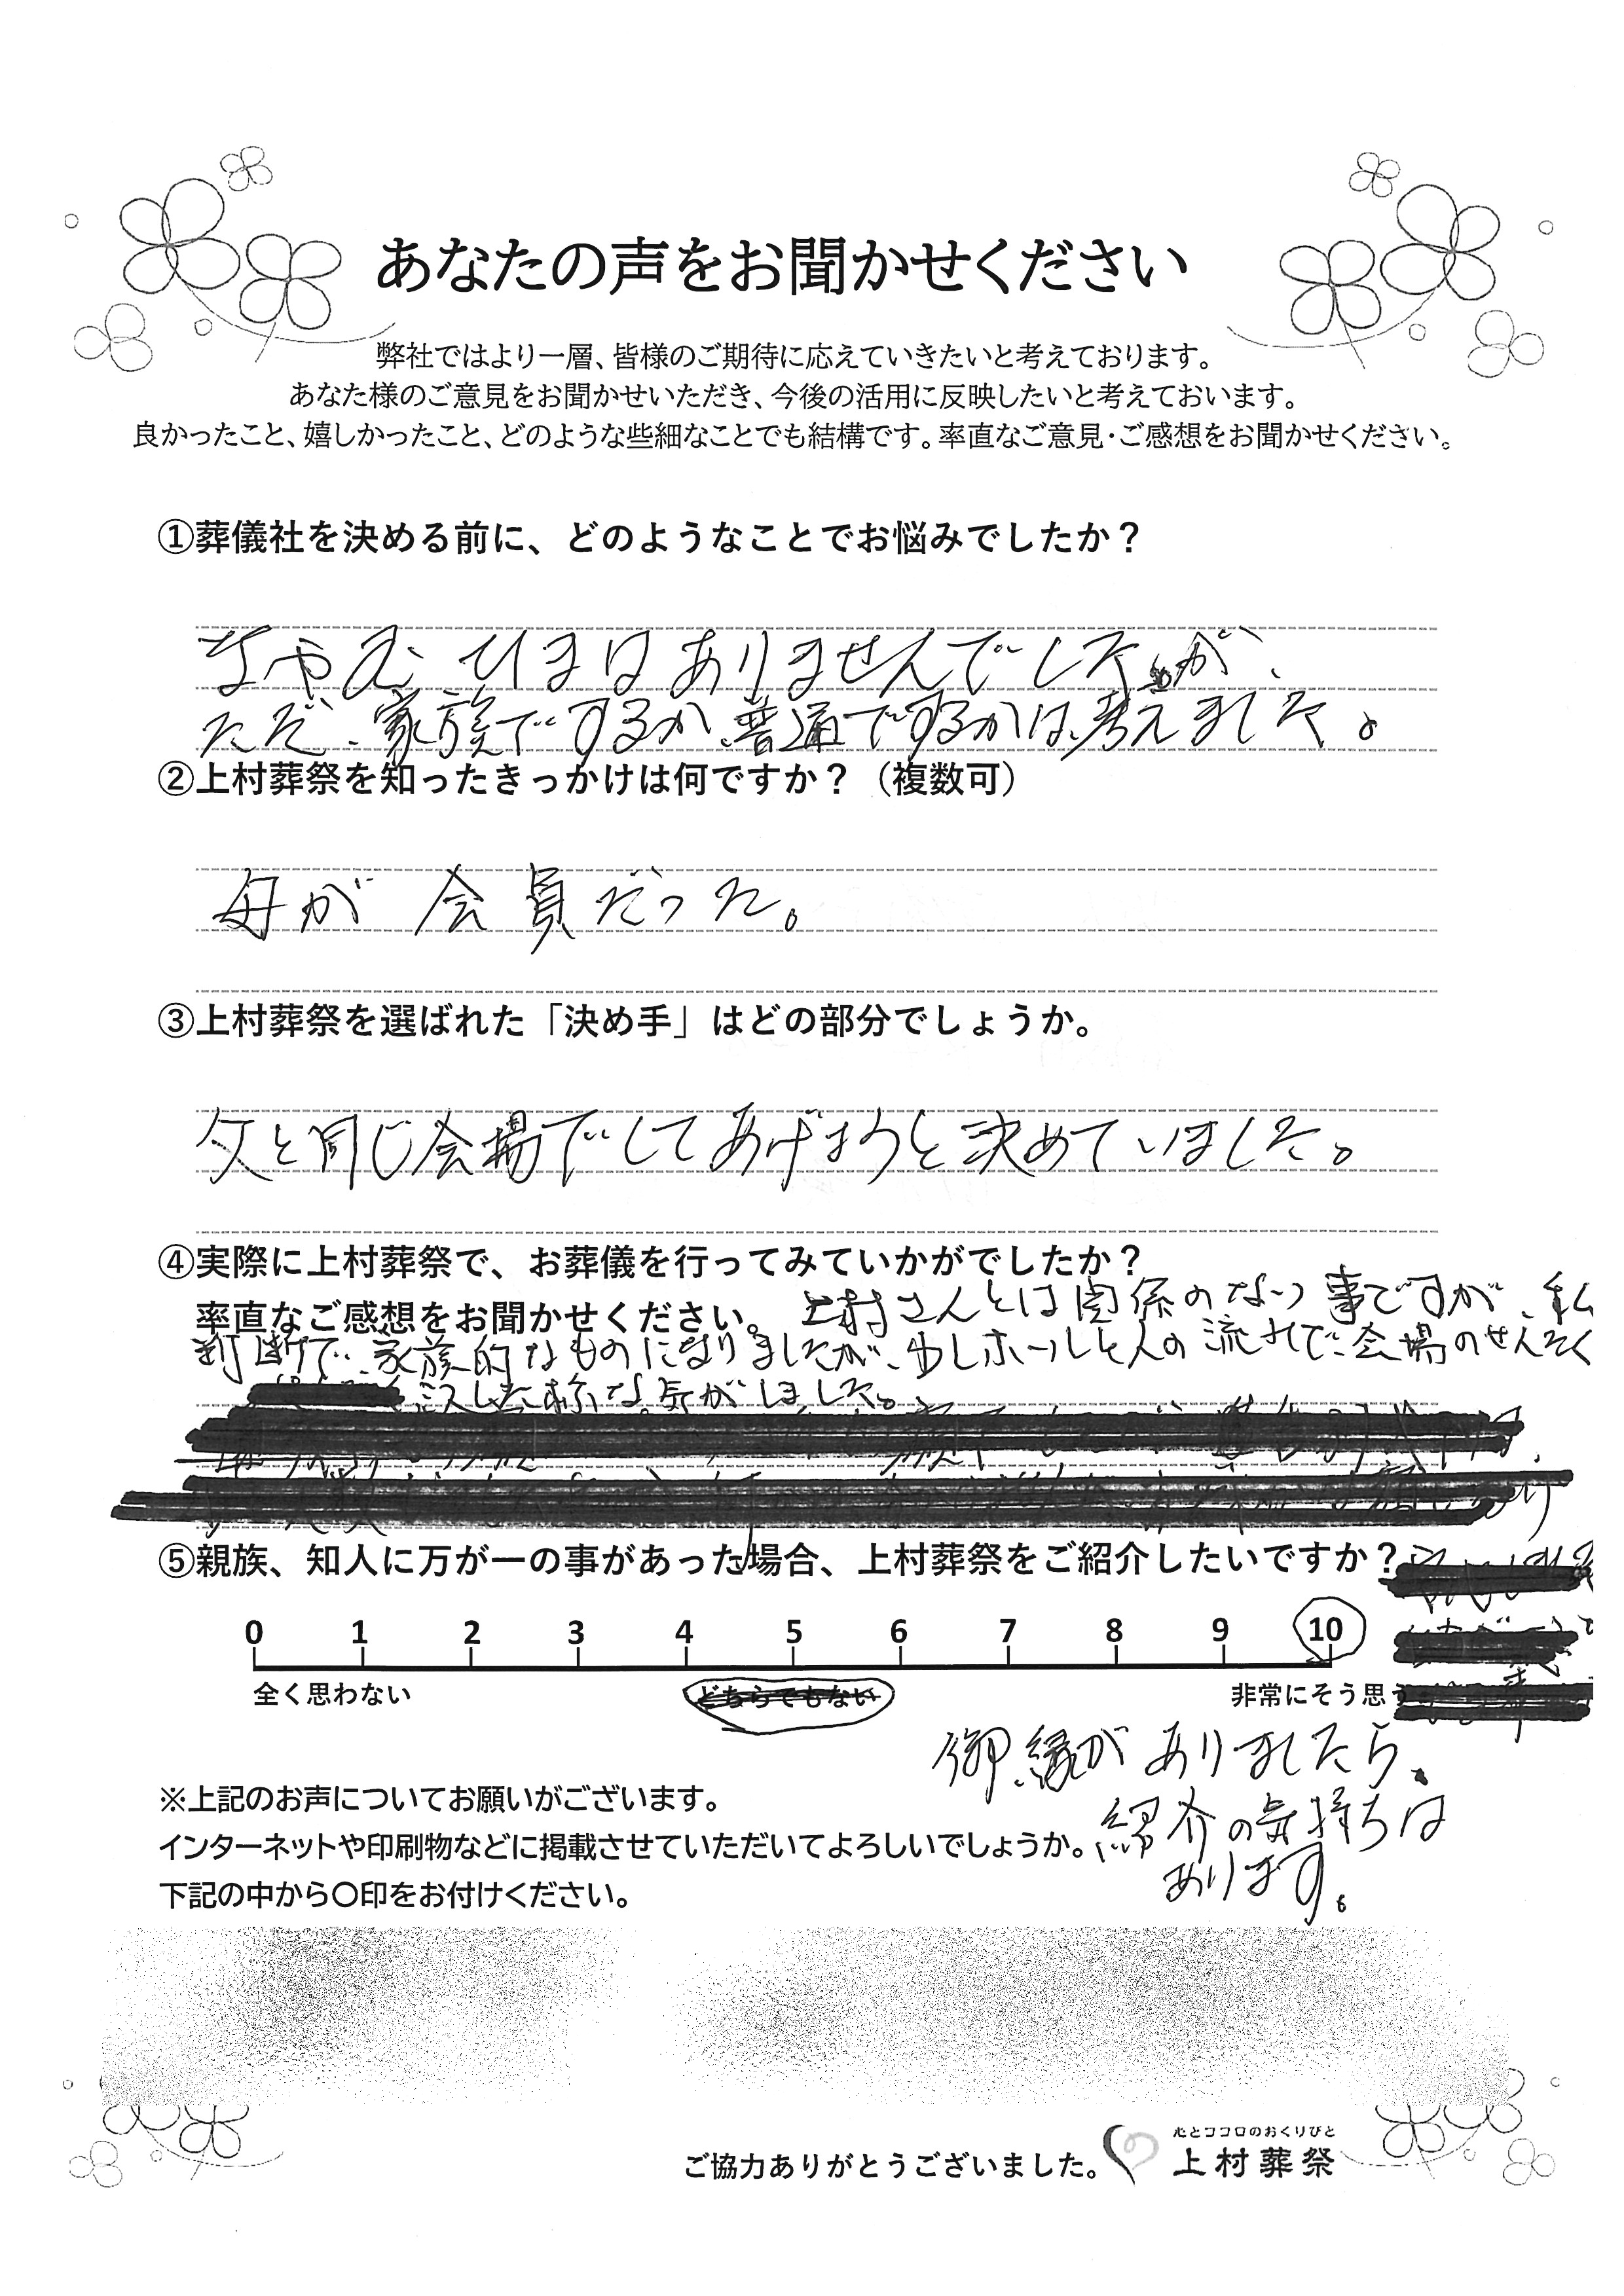 あなたの声をお聞かせください
弊社ではより一層、皆様のご期待に応えていきたいと考えております。
あなた様のご意見をお聞かせいただき、今後の活用に反映したいと考えておいます。
良かったこと、嬉しかったこと、どのような些細なことでも結構です。率直なご意見・ご感想をお聞かせください。
①葬儀社を決める前に、どのようなことでお悩みでしたか？
なやむ ひまはありませんでしたが、
ただ、家族でするか、普通でするかは、考えました。
②上村葬祭を知ったきっかけは何ですか？（複数可）
母が 会員だった。
③上村葬祭を選ばれた「決め手」はどの部分でしょうか。
父と同じ会場でしてあげようと決めていました。
④実際に上村葬祭で、お葬儀を行ってみていかがでしたか？
率直なご感想をお聞かせください。 上村さんとは関係のない事ですが、私
判断で、家族的なものになりましたが、少しホールと人の流れで、会場のせんたく
した様な気がしました。
⑤親族、知人に万が一の事があった場合、上村葬祭をご紹介したいですか？
0 1 2 3 4 5 6 7 8 9 10
全く思わない どちらでもない 非常にそう思う
御縁がありましたら、
紹介の気持ちは
あります。
※上記のお声についてお願いがございます。
インターネットや印刷物などに掲載させていただいてよろしいでしょうか。
下記の中から〇印をお付けください。
ご協力ありがとうございました。
心とココロのおくりびと
上村葬祭